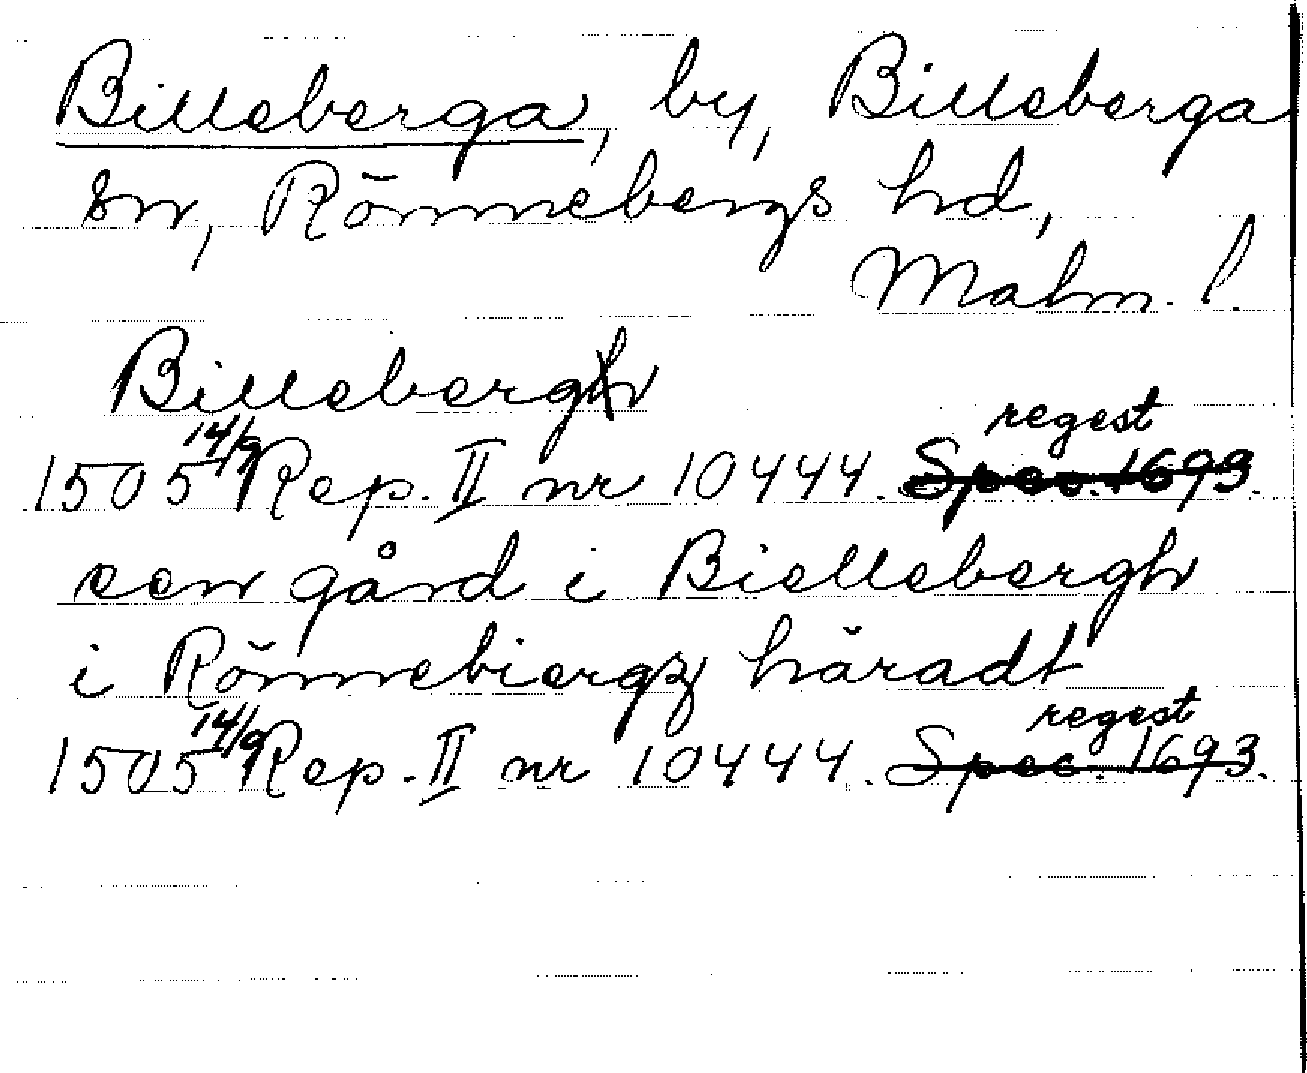 Billeberga, by, Billeberga
sn, Rönnebergs hd,
Malm. l.
Billebergh
regest
1505 14/9 Rep. II nr 10444. Spec. 1693.
een gård i Biellebergh
i Rönnebiergz häradt
regest
1505 14/9 Rep. II nr 10444. Spec. 1693.